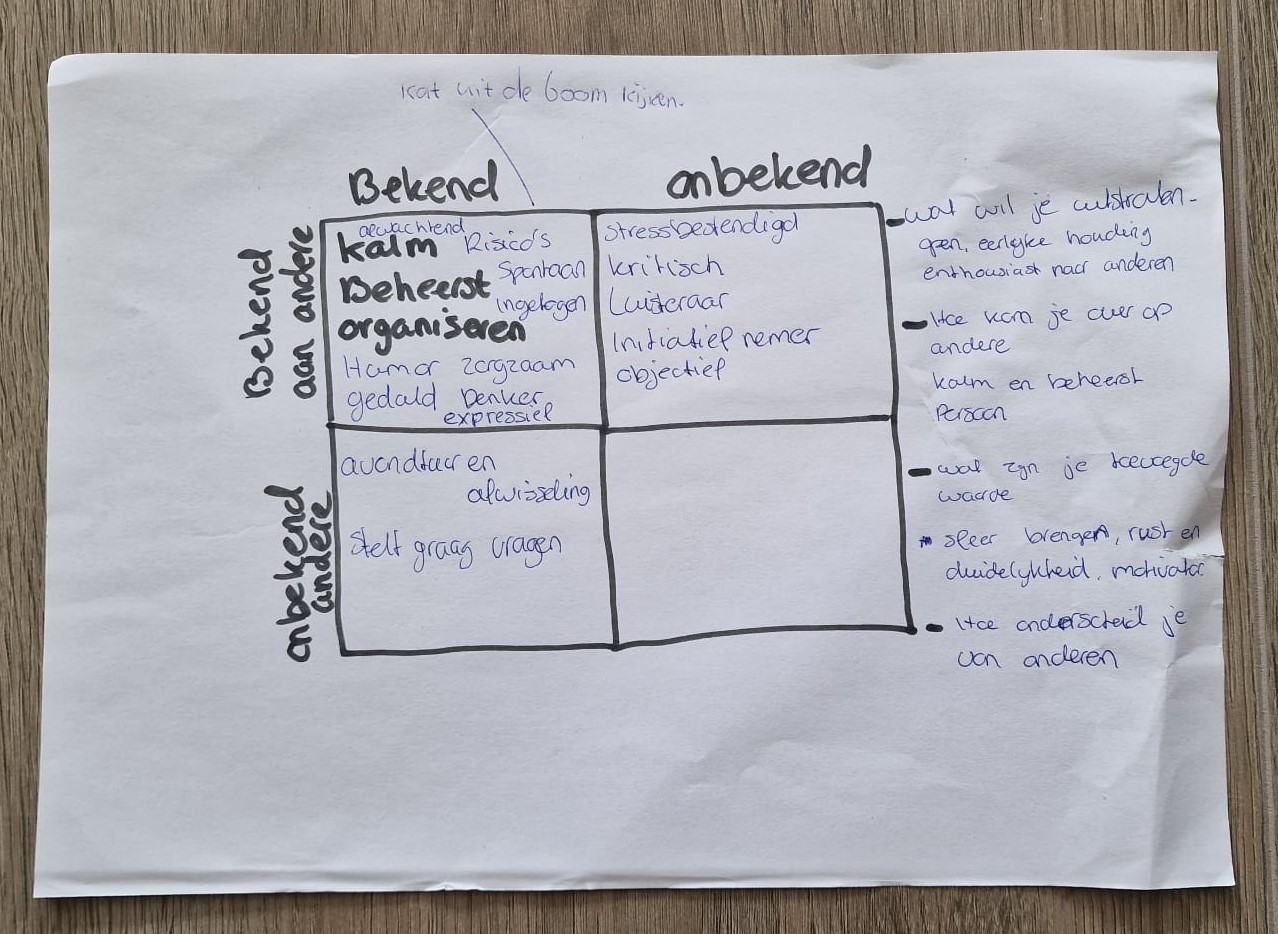 kat uit de boom kijken.
Bekend
onbekend
Bekend
aan andere
afwachtend
kalm Risico's
Spontaan
Beheerst
ingetogen
organiseren
Humor zorgzaam
geduld Denker
expressief
stressbestendigd
kritisch
Luisteraar
Initiatief nemer
objectief
onbekend
andere
avondtuur en
afwisseling
Stelt graag vragen
- wat wil je uitstralen -
open, eerlijke houding
enthousiast naar anderen
- Hoe kom je over op
andere
kalm en beheerst
Persoon
- wat zijn je toevoegde
waarde
* sfeer brengen, rust en
duidelijkheid, motivator
- Hoe onderscheid je
van anderen